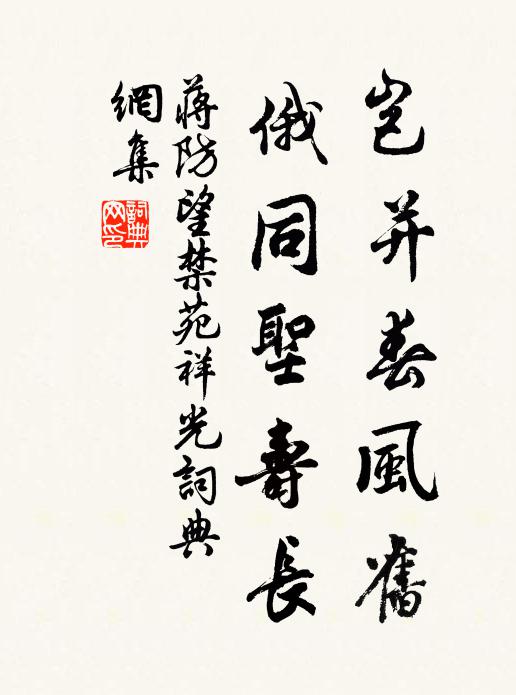 豈并春風舊
俄同聖壽長
蔣防望禁苑祥光詞典
網集
詞典
网印